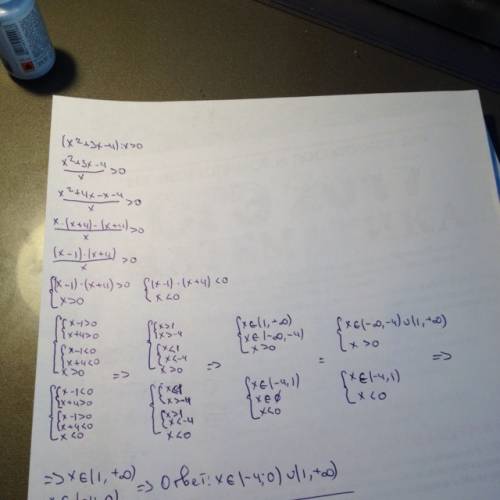 (x²+3x-4):x>0
x²+3x-4/x >0
x²+4x-x-4/x >0
x·(x+4)-(x+4)/x >0
(x-1)·(x+4)/x >0
{(x-1)·(x+4)>0 {(x-1)·(x+4)<0
x>0 x<0
{x-1>0 {x>1 x∈(1,+∞) x∈(-∞,-4)∪(1,+∞)
x+4>0 x>-4 x∈(-∞,-4) x>0
{x-1<0 => {x<1 => x>0 = =>
x+4<0 x<-4
x>0 x>0
{x-1<0 {x<1 x∈(-4,1) x∈(-4,1)
x+4>0 x>-4 x∈∅ x<0
{x-1>0 {x>1 x<0
x+4<0 x<-4
x<0 x<0
=> x∈(1,+∞) => Ответ: x∈(-4;0)∪(1,+∞)
x∈(-4,0)